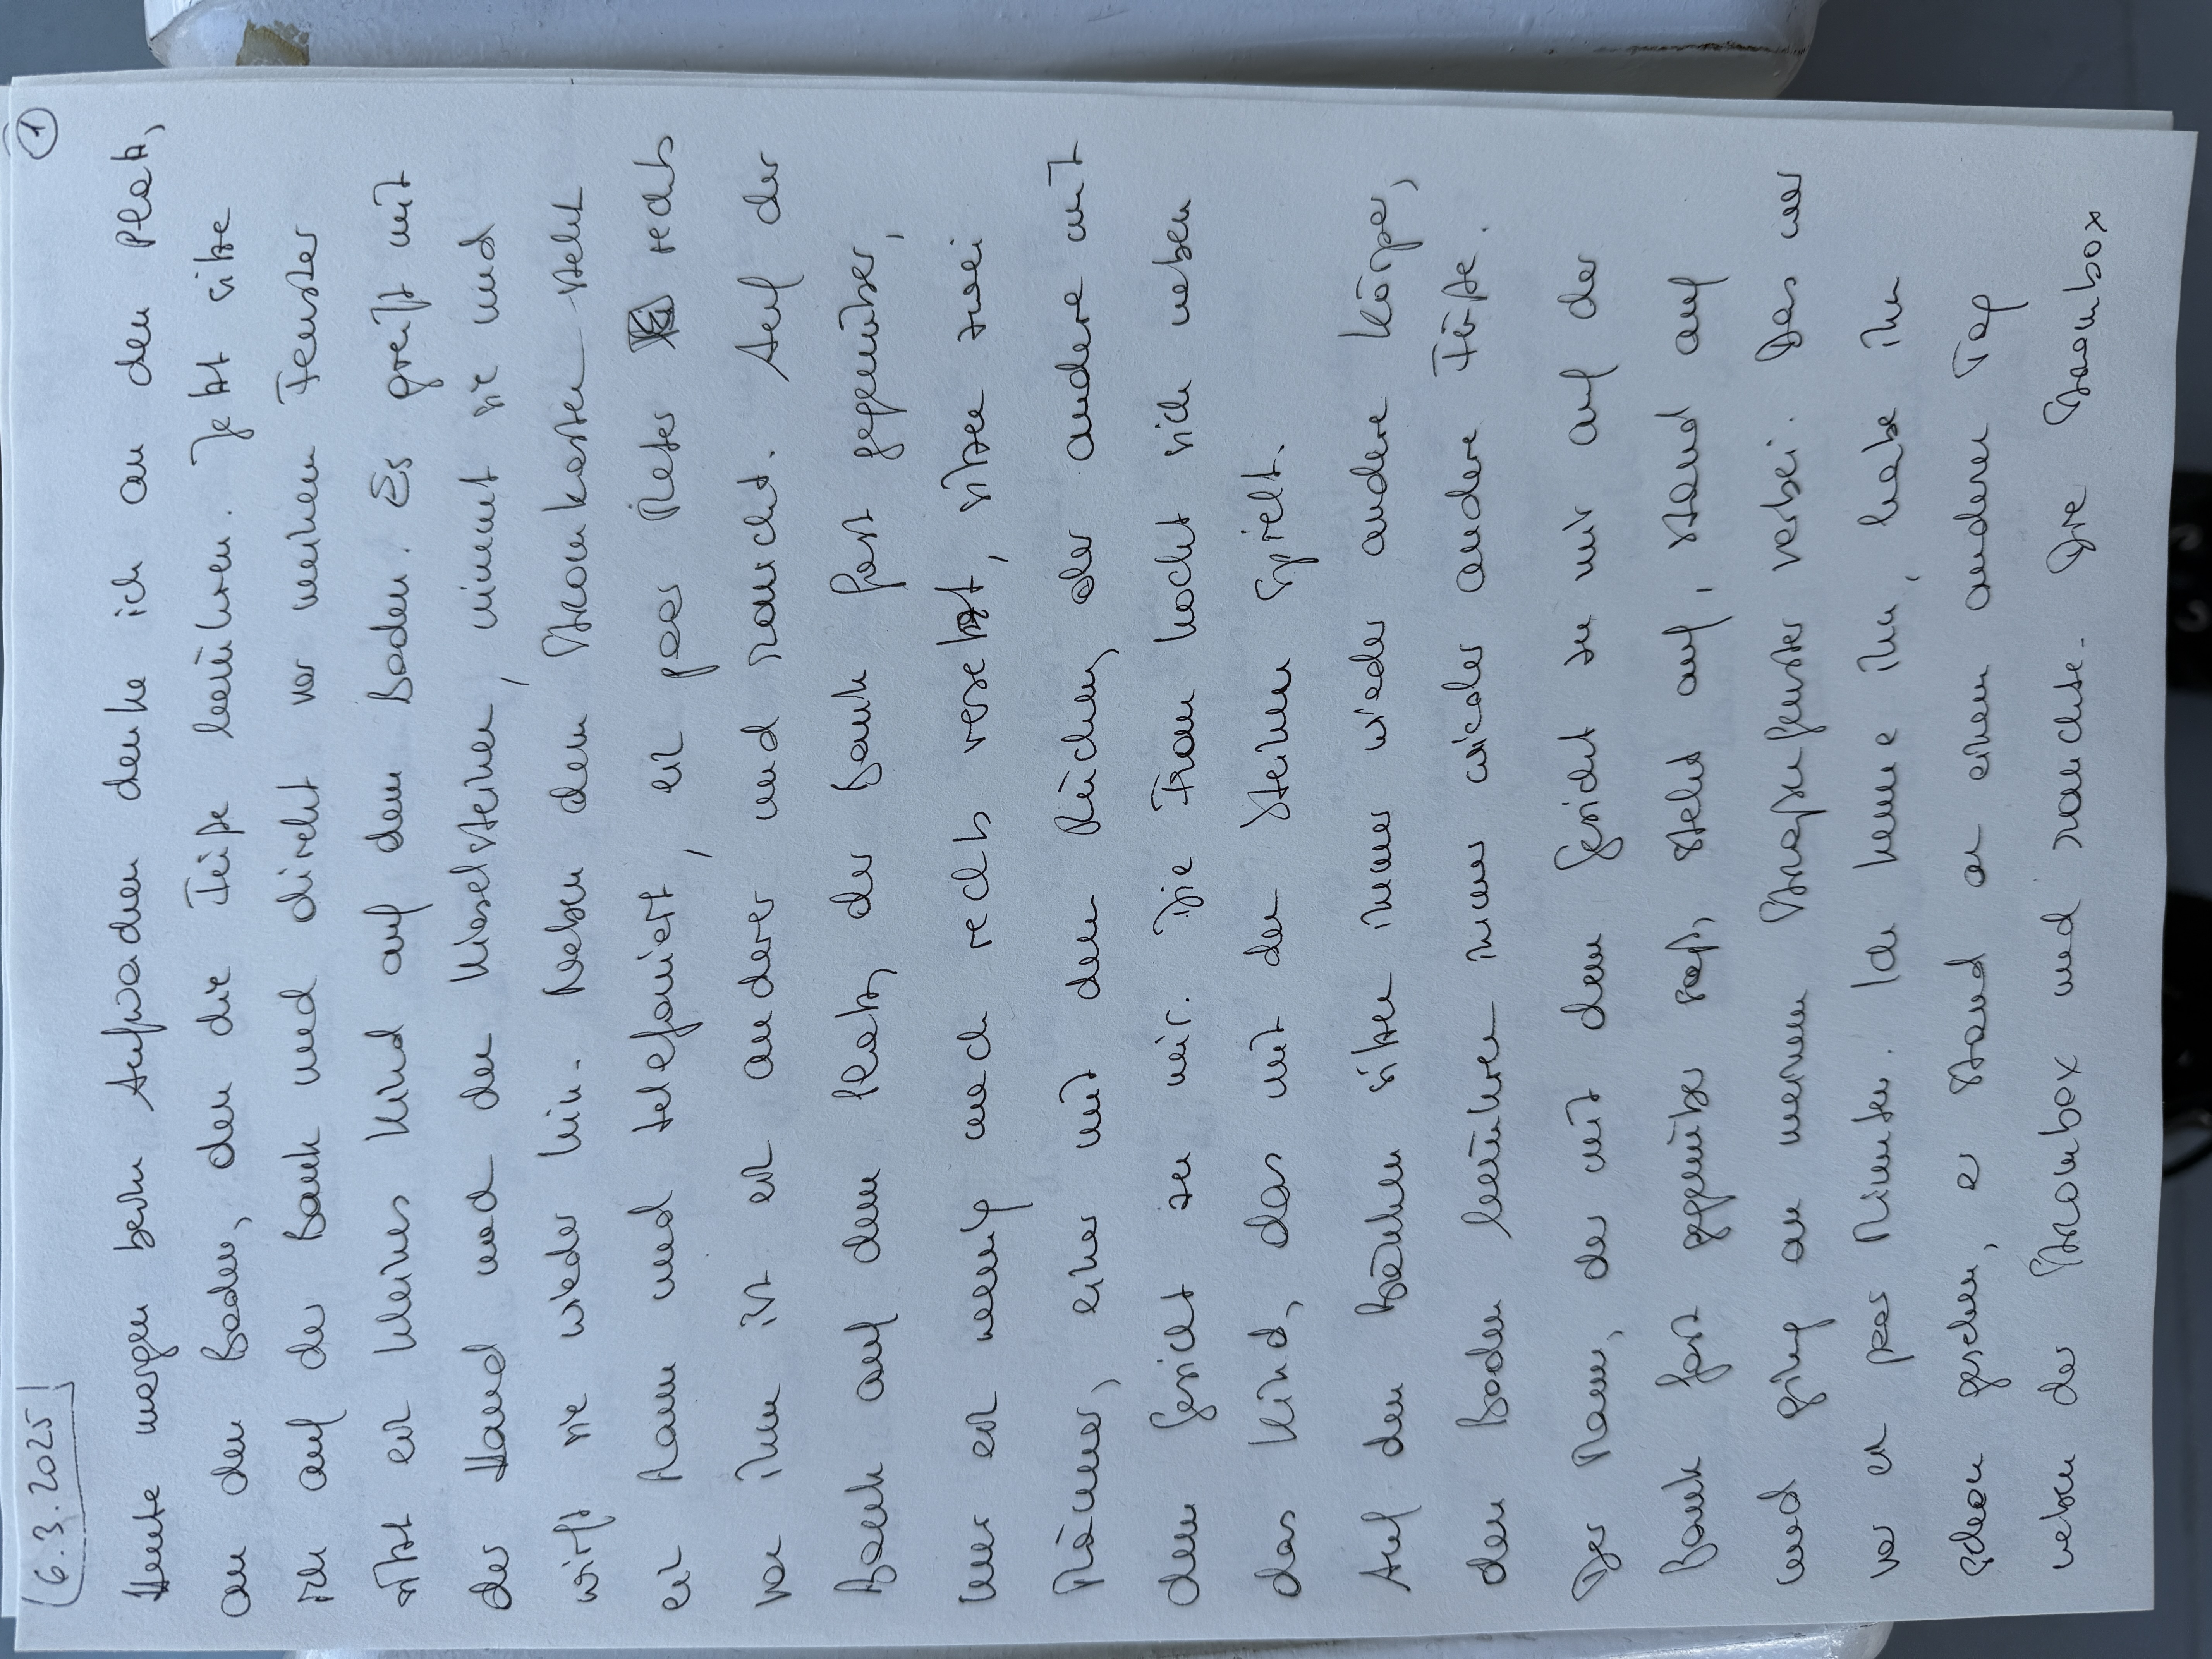 6.3.2025
①
Heute morgen beim Aufwachen denke ich an den Platz,
an den Boden, den die Füße berühren. Jetzt sitze
ich auf der Bank und direkt vor meinem Fenster
sitzt ein kleines Kind auf dem Boden. Es greift mit
der Hand nach den Kieselsteinen, nimmt sie und
wirft sie wieder hin. Neben dem Stromkasten steht
ein Mann und telefoniert, ein paar Meter rechts
von ihm ist ein anderer und raucht. Auf der
Bank auf dem Platz, der Bank fast gegenüber,
nur ein wenig nach rechts versetzt, sitzen zwei
Männer, einer mit dem Rücken, der andere mit
dem Gesicht zu mir. Die Frau hockt sich neben
das Kind, das mit den Steinen spielt.
Auf den Bänken sitzen immer wieder andere Körper,
den Boden berühren immer wieder andere Füße.
Der Mann, der mit dem Gesicht zu mir auf der
Bank fast gegenüber saß, steht auf, stand auf
und ging an meinem Straßenfenster vorbei. Das war
vor ein paar Minuten. Ich kenne ihn, habe ihn
schon gesehen, er stand an einem anderen Tag
neben der Strombox und rauchte. Die Strombox